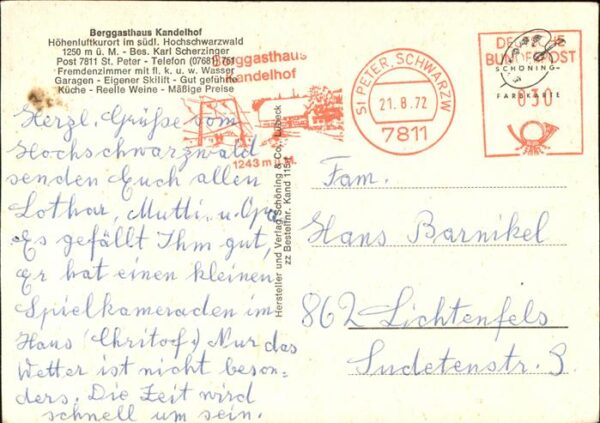 Berggasthaus Kandelhof
Höhenluftkurort im südl. Hochschwarzwald
1250 m ü. M. - Bes. Karl Scherzinger
Post 7811 St. Peter - Telefon (07681) 761
Fremdenzimmer mit fl. k. u. w. Wasser
Garagen - Eigener Skilift - Gut geführte
Küche - Reelle Weine - Mäßige Preise
Herzl. Grüße vom
Hochschwarzwald
senden Euch allen
Lothar, Mutti u. Opa
Es gefällt Ihm gut,
Er hat einen kleinen
Spielkameraden im
Haus (Chritof) Nur das
Wetter ist nicht beson=
ders. Die Zeit wird
schnell um sein.
Hersteller und Verlag Schöning & Co., Lübeck
zz Bestellnr. Kand 115
Berggasthaus
Kandelhof
1243 m
ST PETER, SCHWARZW
21.8.72
7811
DEUTSCHE
BUNDESPOST
030
SCHÖNING-
FARBKARTE
Fam.
Hans Barnikel
862 Lichtenfels
Sudetenstr. 3.